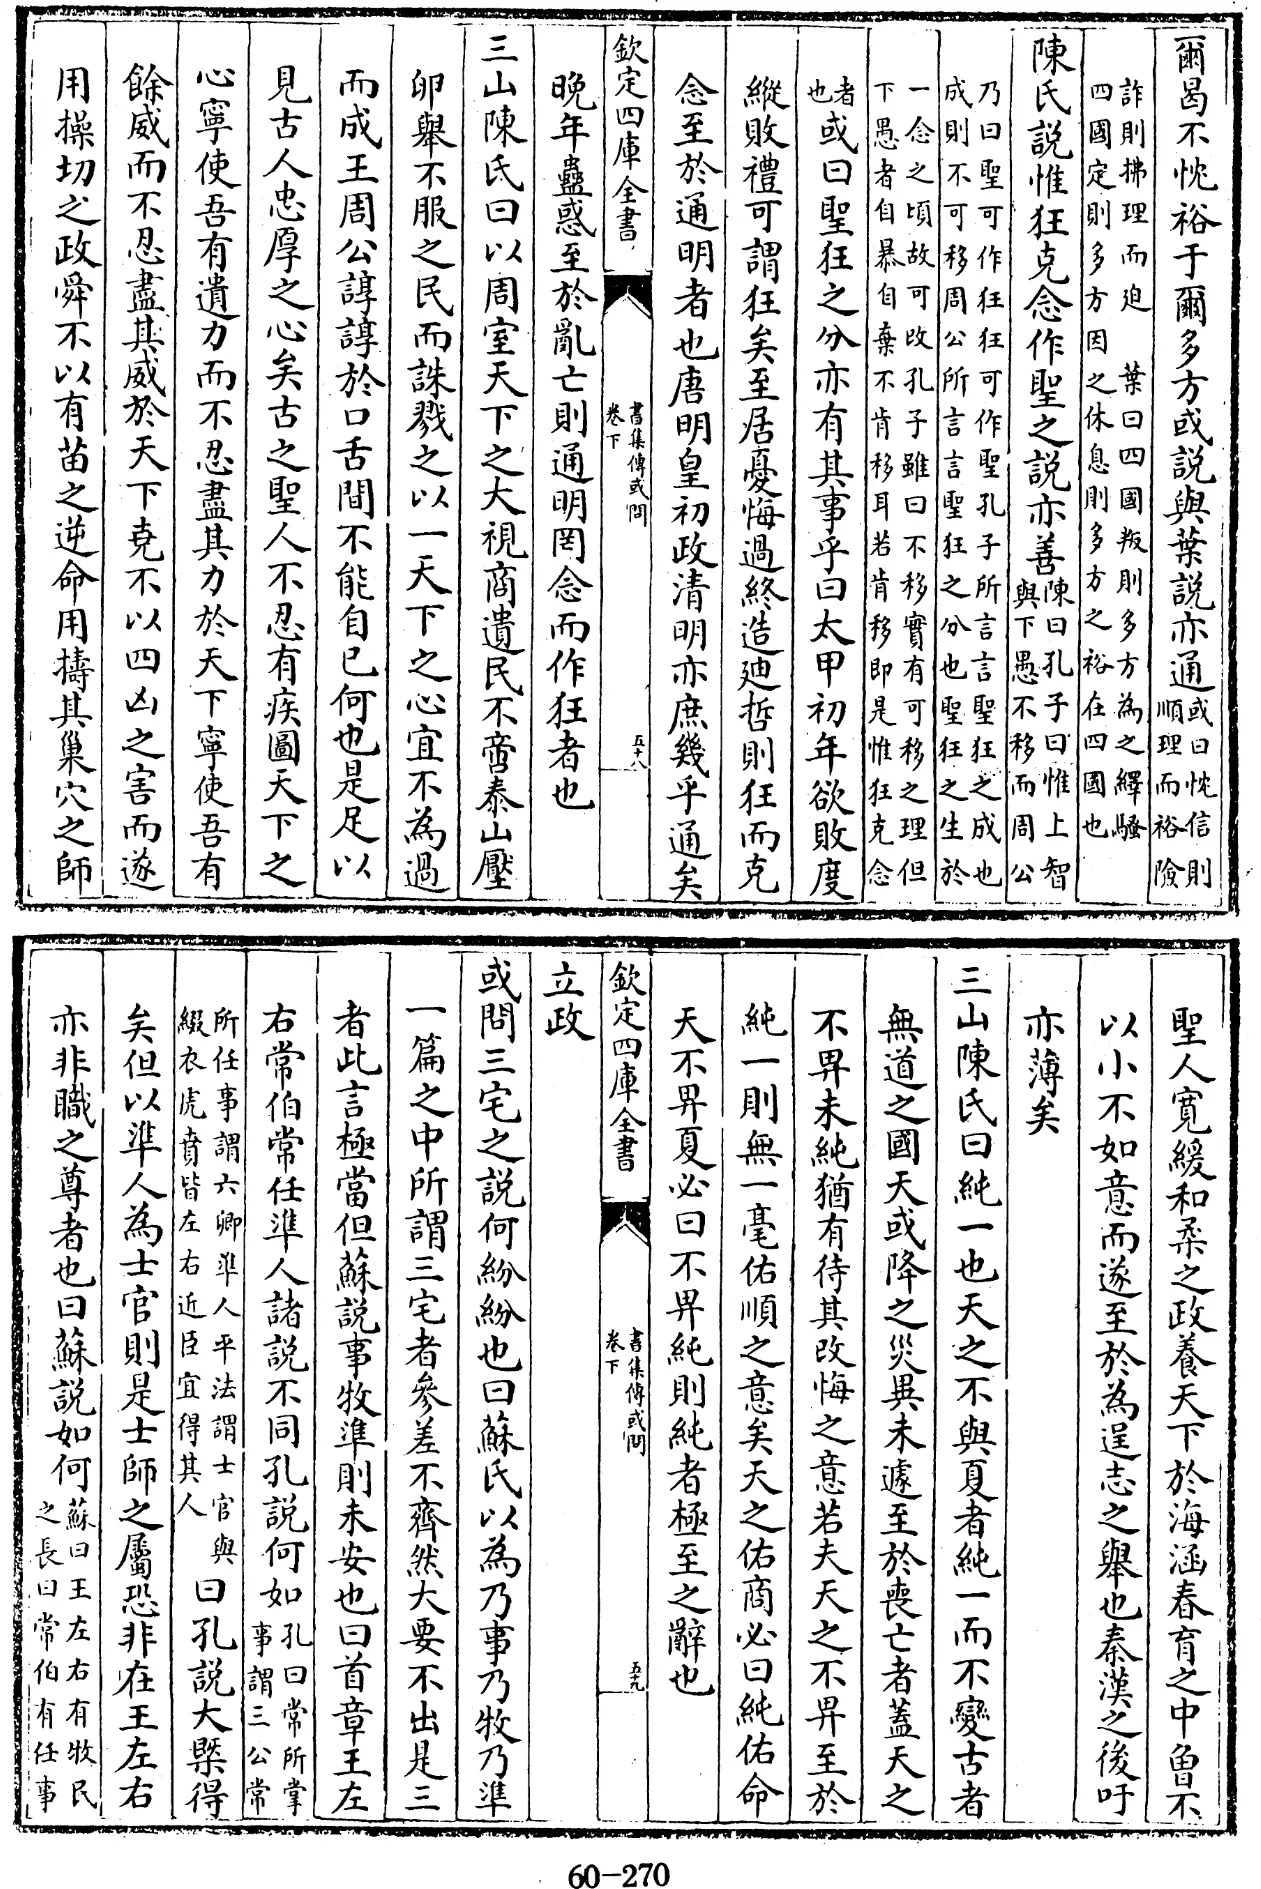 爾曷不忱裕于爾多方或説與葉説亦通或曰忱信則順理而裕險
詐則拂理而迫　葉曰四國叛則多方為之繹騷四國定則多方因之休息則多方之裕在四國也
陳氏説惟狂克念作聖之説亦善陳曰孔子曰惟上智與下愚不移而周公
乃曰聖可作狂狂可作聖孔子所言言聖狂之成也成則不可移周公所言言聖狂之分也聖狂之生於
一念之頃故可改孔子雖曰不移實有可移之理但下愚者自暴自棄不肯移耳若肯移即是惟狂克念
者也或曰聖狂之分亦有其事乎曰太甲初年欲敗度
縱敗禮可謂狂矣至居憂悔過終造廸哲則狂而克
念至於通明者也唐明皇初政清明亦庶幾乎通矣
欽定四庫全書
書集傳或問
卷下
五十八
晚年蠱惑至於亂亡則通明罔念而作狂者也
三山陳氏曰以周室天下之大視商遺民不啻泰山壓
卵舉不服之民而誅戮之以一天下之心宜不為過
而成王周公諄諄於口舌間不能自已何也是足以
見古人忠厚之心矣古之聖人不忍有疾圖天下之
心寧使吾有遺力而不忍盡其力於天下寧使吾有
餘威而不忍盡其威於天下堯不以四凶之害而遂
用操切之政舜不以有苗之逆命用擣其巢穴之師
聖人寛緩和柔之政養天下於海涵春育之中曽不
以小不如意而遂至於為逞志之舉也秦漢之後吁
亦薄矣
三山陳氏曰純一也天之不與夏者純一而不變古者
無道之國天或降之災異未遽至於喪亡者蓋天之
不畀未純猶有待其改悔之意若夫天之不畀至於
純一則無一毫佑順之意矣天之佑商必曰純佑命
天不畀夏必曰不畀純則純者極至之辭也
欽定四庫全書
書集傳或問
卷下
五十九
立政
或問三宅之説何紛紛也曰蘇氏以為乃事乃牧乃準
一篇之中所謂三宅者參差不齊然大要不出是三
者此言極當但蘇説事牧準則未安也曰首章王左
右常伯常任準人諸説不同孔説何如孔曰常所掌事謂三公常
所任事謂六卿準人平法謂士官與綴衣虎賁皆左右近臣宜得其人曰孔説大槩得
矣但以準人為士官則是士師之屬恐非在王左右
亦非職之尊者也曰蘇説如何蘇曰王左右有牧民之長曰常伯有任事
60-270